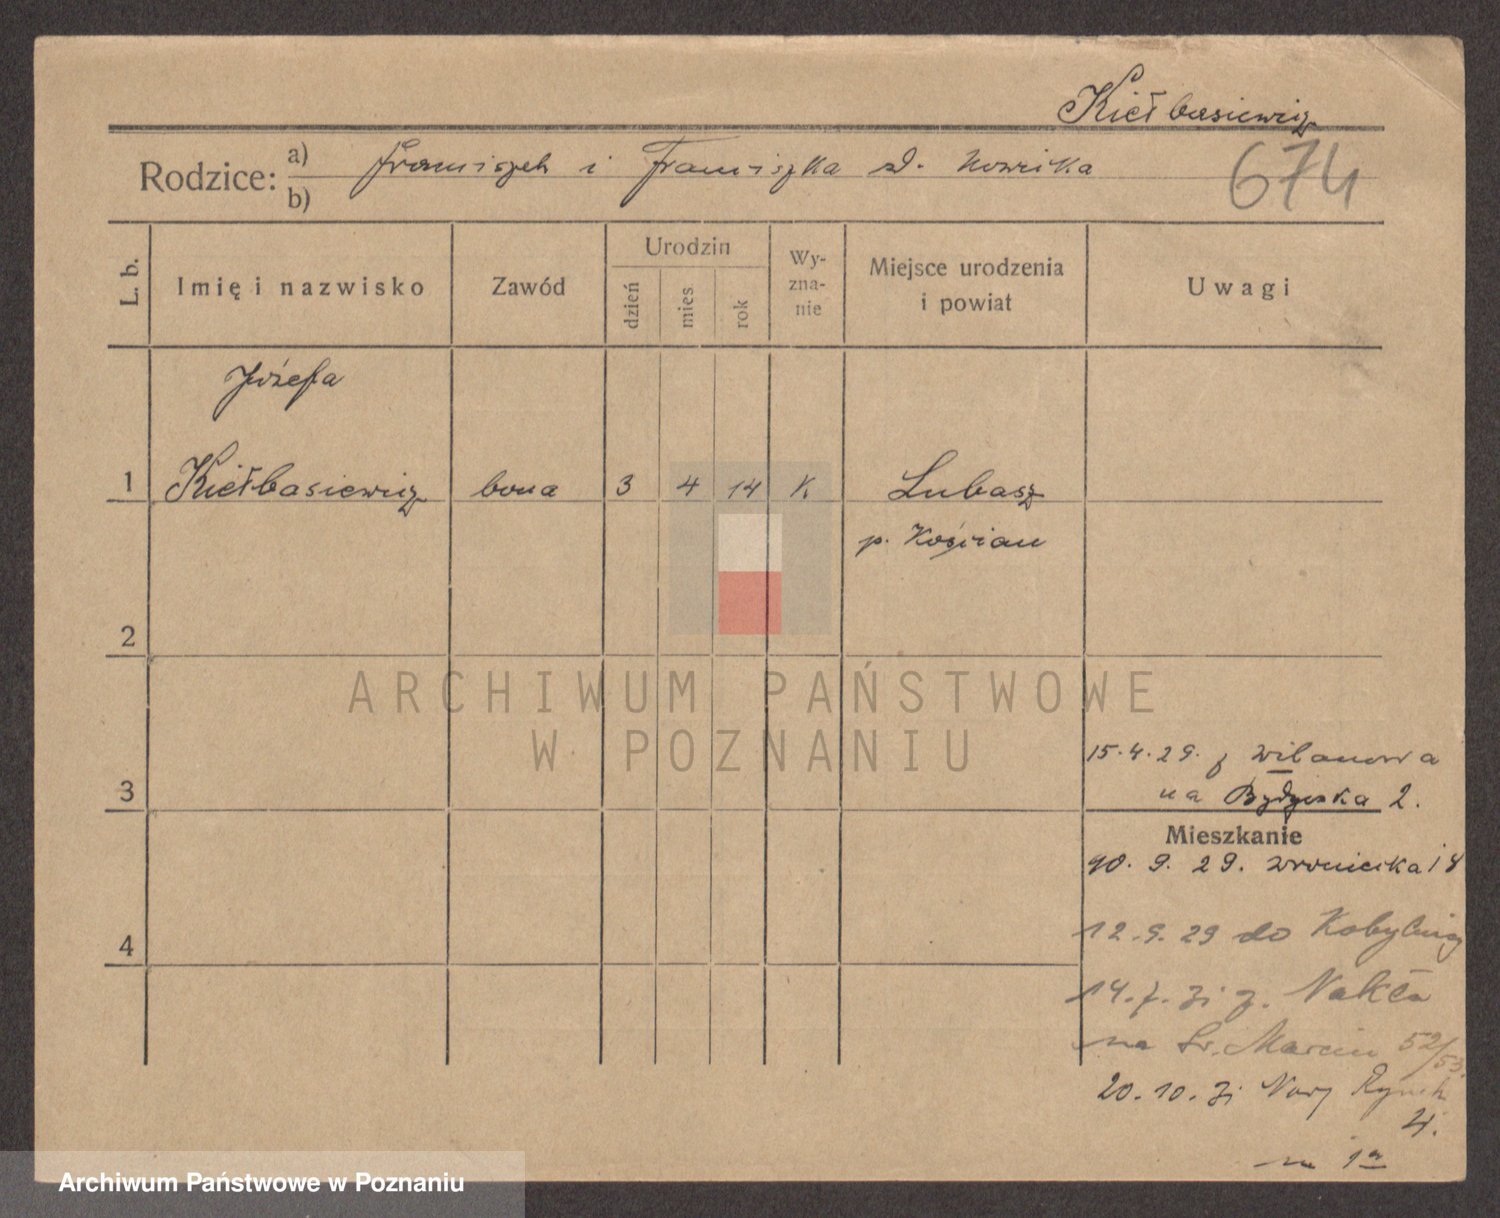 Kiełbasiewicz
Rodzice: a) b) Franciszek i Franciszka z d. Nowicka
674
L. b. Imię i nazwisko Zawód Urodzin dzień mies rok Wyznanie Miejsce urodzenia i powiat Uwagi
Józefa
1 Kiełbasiewicz bona 3 4 14 K Lubasz
p. Kościan
2
ARCHIWUM PAŃSTWOWE
W POZNANIU
15.4.29. z Wilanowa
na 2.
3
Mieszkanie
9. 29. Wroniecka 18
12.9.29 do Kobylnicy
4
14.7.31 z. Nakła
na Św. Marcin 52/53.
20.10.31 Nowy Rynek
4.
na 1a
Archiwum Państwowe w Poznaniu